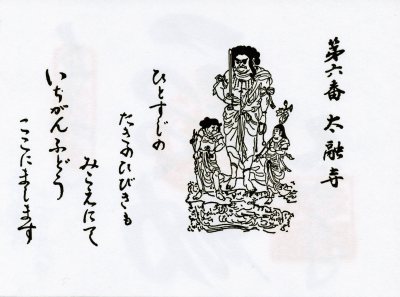 第六番 太融寺
ひとすじの
たきのひびきも
みこえにて
いちがんふどう
ここにまします